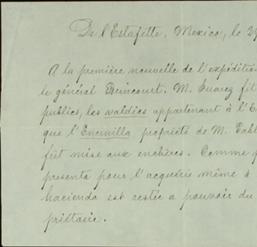 De l'Estafette, Mexico, le 29
A la première nouvelle de l'expédition
le général Brincourt, M. Juarez fit
publics, les waldios appartenant à l'E
que l'Encinilla propriété de M. Pabl
fût mise aux enchères. Comme
presenta pour l'acquérir même à
hacienda est restée a pouvoir du
priétaire.